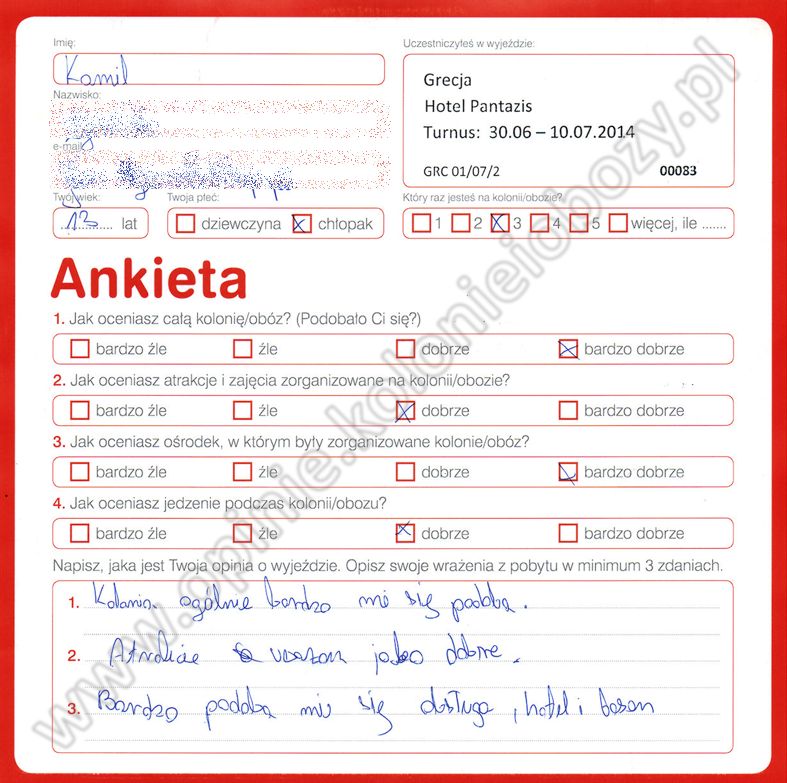 Imię:
Uczestniczyłeś w wyjeździe:
Kamil
Grecja
Nazwisko:
Hotel Pantazis
Turnus: 30.06 – 10.07.2014
e-mail:
GRC 01/07/2 00083
Twój wiek:
Twoja płeć:
Który raz jesteś na kolonii/obozie?
13 lat
dziewczyna chłopak
1 2 3 4 5 więcej, ile .......
Ankieta
1. Jak oceniasz całą kolonię/obóz? (Podobało Ci się?)
bardzo źle źle dobrze bardzo dobrze
2. Jak oceniasz atrakcje i zajęcia zorganizowane na kolonii/obozie?
bardzo źle źle dobrze bardzo dobrze
3. Jak oceniasz ośrodek, w którym były zorganizowane kolonie/obóz?
bardzo źle źle dobrze bardzo dobrze
4. Jak oceniasz jedzenie podczas kolonii/obozu?
bardzo źle źle dobrze bardzo dobrze
Napisz, jaka jest Twoja opinia o wyjeździe. Opisz swoje wrażenia z pobytu w minimum 3 zdaniach.
1. Kolonia ogólnie bardzo mi się podoba.
2. Atrakcje uważam jako dobre.
3. Bardzo podoba mi się obsługa, hotel i basen
www.opinie.kolonieiobozy.pl